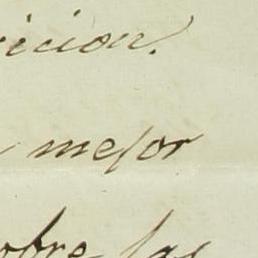 icion.
mejor
obre las